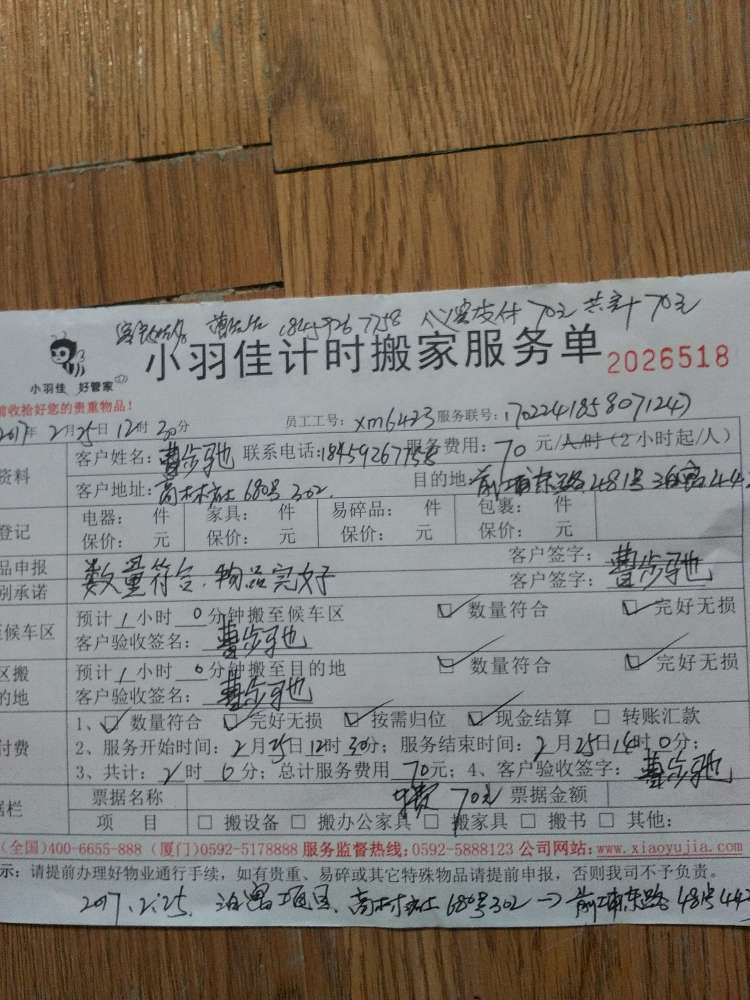 18459267758 70元 共计70元
小羽佳计时搬家服务单 2026518
小羽佳 好管家
前收拾好您的贵重物品!
2017年2月25日12时30分 员工工号: xm6423 服务联号: 1702241858071247
资料 客户姓名: 曹步驰 联系电话: 服务费用: 70 元/人时(2小时起/人)
客户地址: 高林 680号302 目的地: 前埔东路481号 442
登记 电器: 件 家具: 件 易碎品: 件 包裹: 件
保价: 元 保价: 元 保价: 元 保价: 元
品申报 数量符合、物品完好 客户签字: 曹步驰
别承诺 客户签字:
至候车区 预计1小时0分钟搬至候车区 数量符合 完好无损
客户验收签名: 曹步驰
区搬 预计1小时0分钟搬至目的地 数量符合 完好无损
的地 客户验收签名: 曹步驰
付费 1、数量符合 完好无损 按需归位 现金结算 转账汇款
2、服务开始时间: 2月25日12时30分; 服务结束时间: 2月25日14时0分;
3、共计: 时 分; 总计服务费用 70元; 4、客户验收签字: 曹步驰
据栏 票据名称 70元 票据金额
项 目 搬设备 搬办公家具 搬家具 搬书 其他:
(全国)400-6655-888 (厦门)0592-5178888 服务监督热线: 0592-5888123 公司网站: www.xiaoyujia.com
示: 请提前办理好物业通行手续, 如有贵重、易碎或其它特殊物品请提前申报, 否则我司不予负责。
2017.2.25. 泊寓项目、高林 680号302→前埔东路481号442